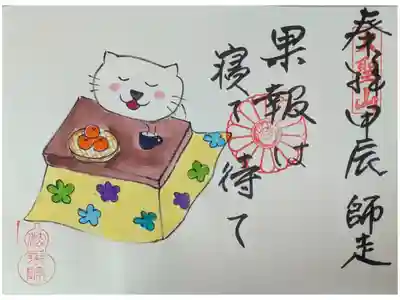 奉拝 甲辰 師走
果報は
寝て待て